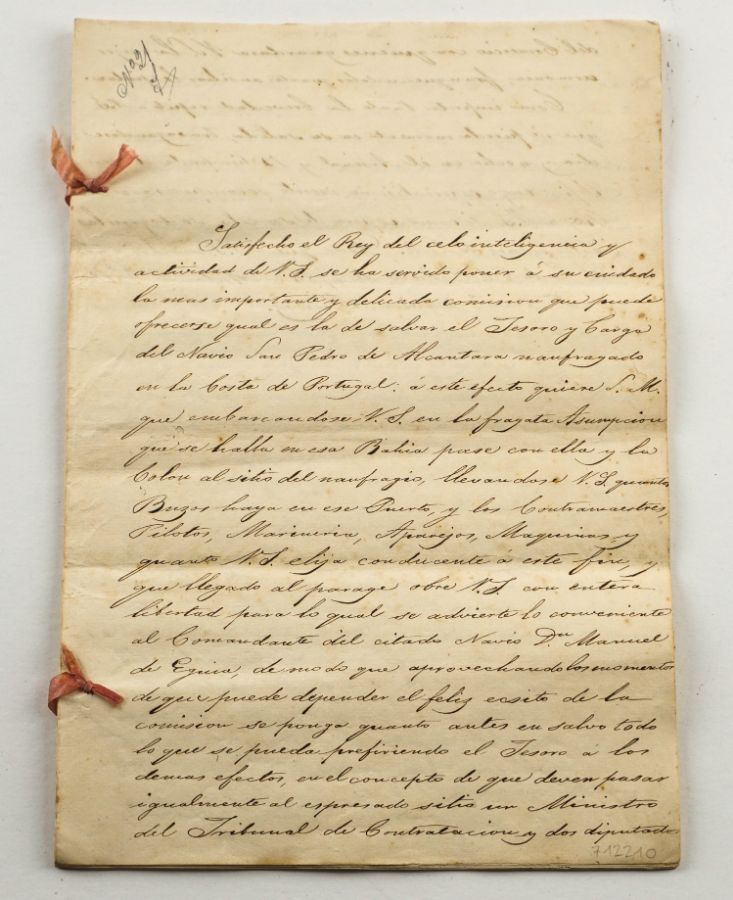 Nº 21
Satisfecho el Rey del celo inteligencia y
actividad de V.S. se ha servido poner á su cuidado
la mas importante y delicada comision que puede
ofrecerse qual es la de salvar el Tesoro y Carga
del Navio San Pedro de Alcantara naufragado
en la Costa de Portugal: á este efecto quiere S.M.
que embarcandose V.S. en la fragata Asumpcion
que se halla en esa Bahia pase con ella y la
Colon al sitio del naufragio, llevandose V.S. quantos
Buzos haya en ese Puerto, y los Contramaestres,
Pilotos, Marineria, Aparejos, Maquinas y
quanto V.S. elija conducente á este fin, y
que llegado al parage obre V.S. con entera
libertad para lo qual se advierte lo conveniente
al Comandante del citado Navio Dn. Manuel
de Eguia, de modo que aprovechando los momentos
de que puede depender el felis ecsito de la
comision se ponga quanto antes en salvo todo
lo que se pueda prefiriendo el Tesoro á los
demas efectos, en el concepto de que deven pasar
igualmente al espresado sitio un Ministro
del Tribunal de Contratacion y dos diputados
712210